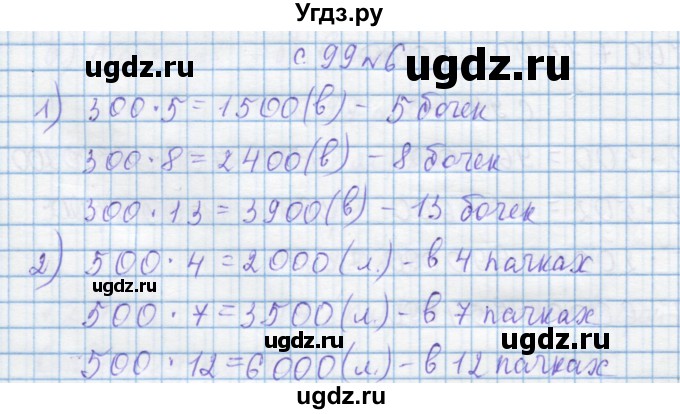 Угдз.ру
с. 99 №6
ugdz.ru ugdz.ru
1) 300·5=1500(в) - 5 бочек
ugdz.ru
300·8=2400(в) - 8 бочек
ugdz.ru ugdz.ru
300·13=3900(в) - 13 бочек
2) 500·4=2000(л.) - в 4 пачках
ugdz.ru
500·7=3500(л.) - в 7 пачках
ugdz.ru ugdz.ru
500·12=6000(л.) - в 12 пачках
ugdz.ru